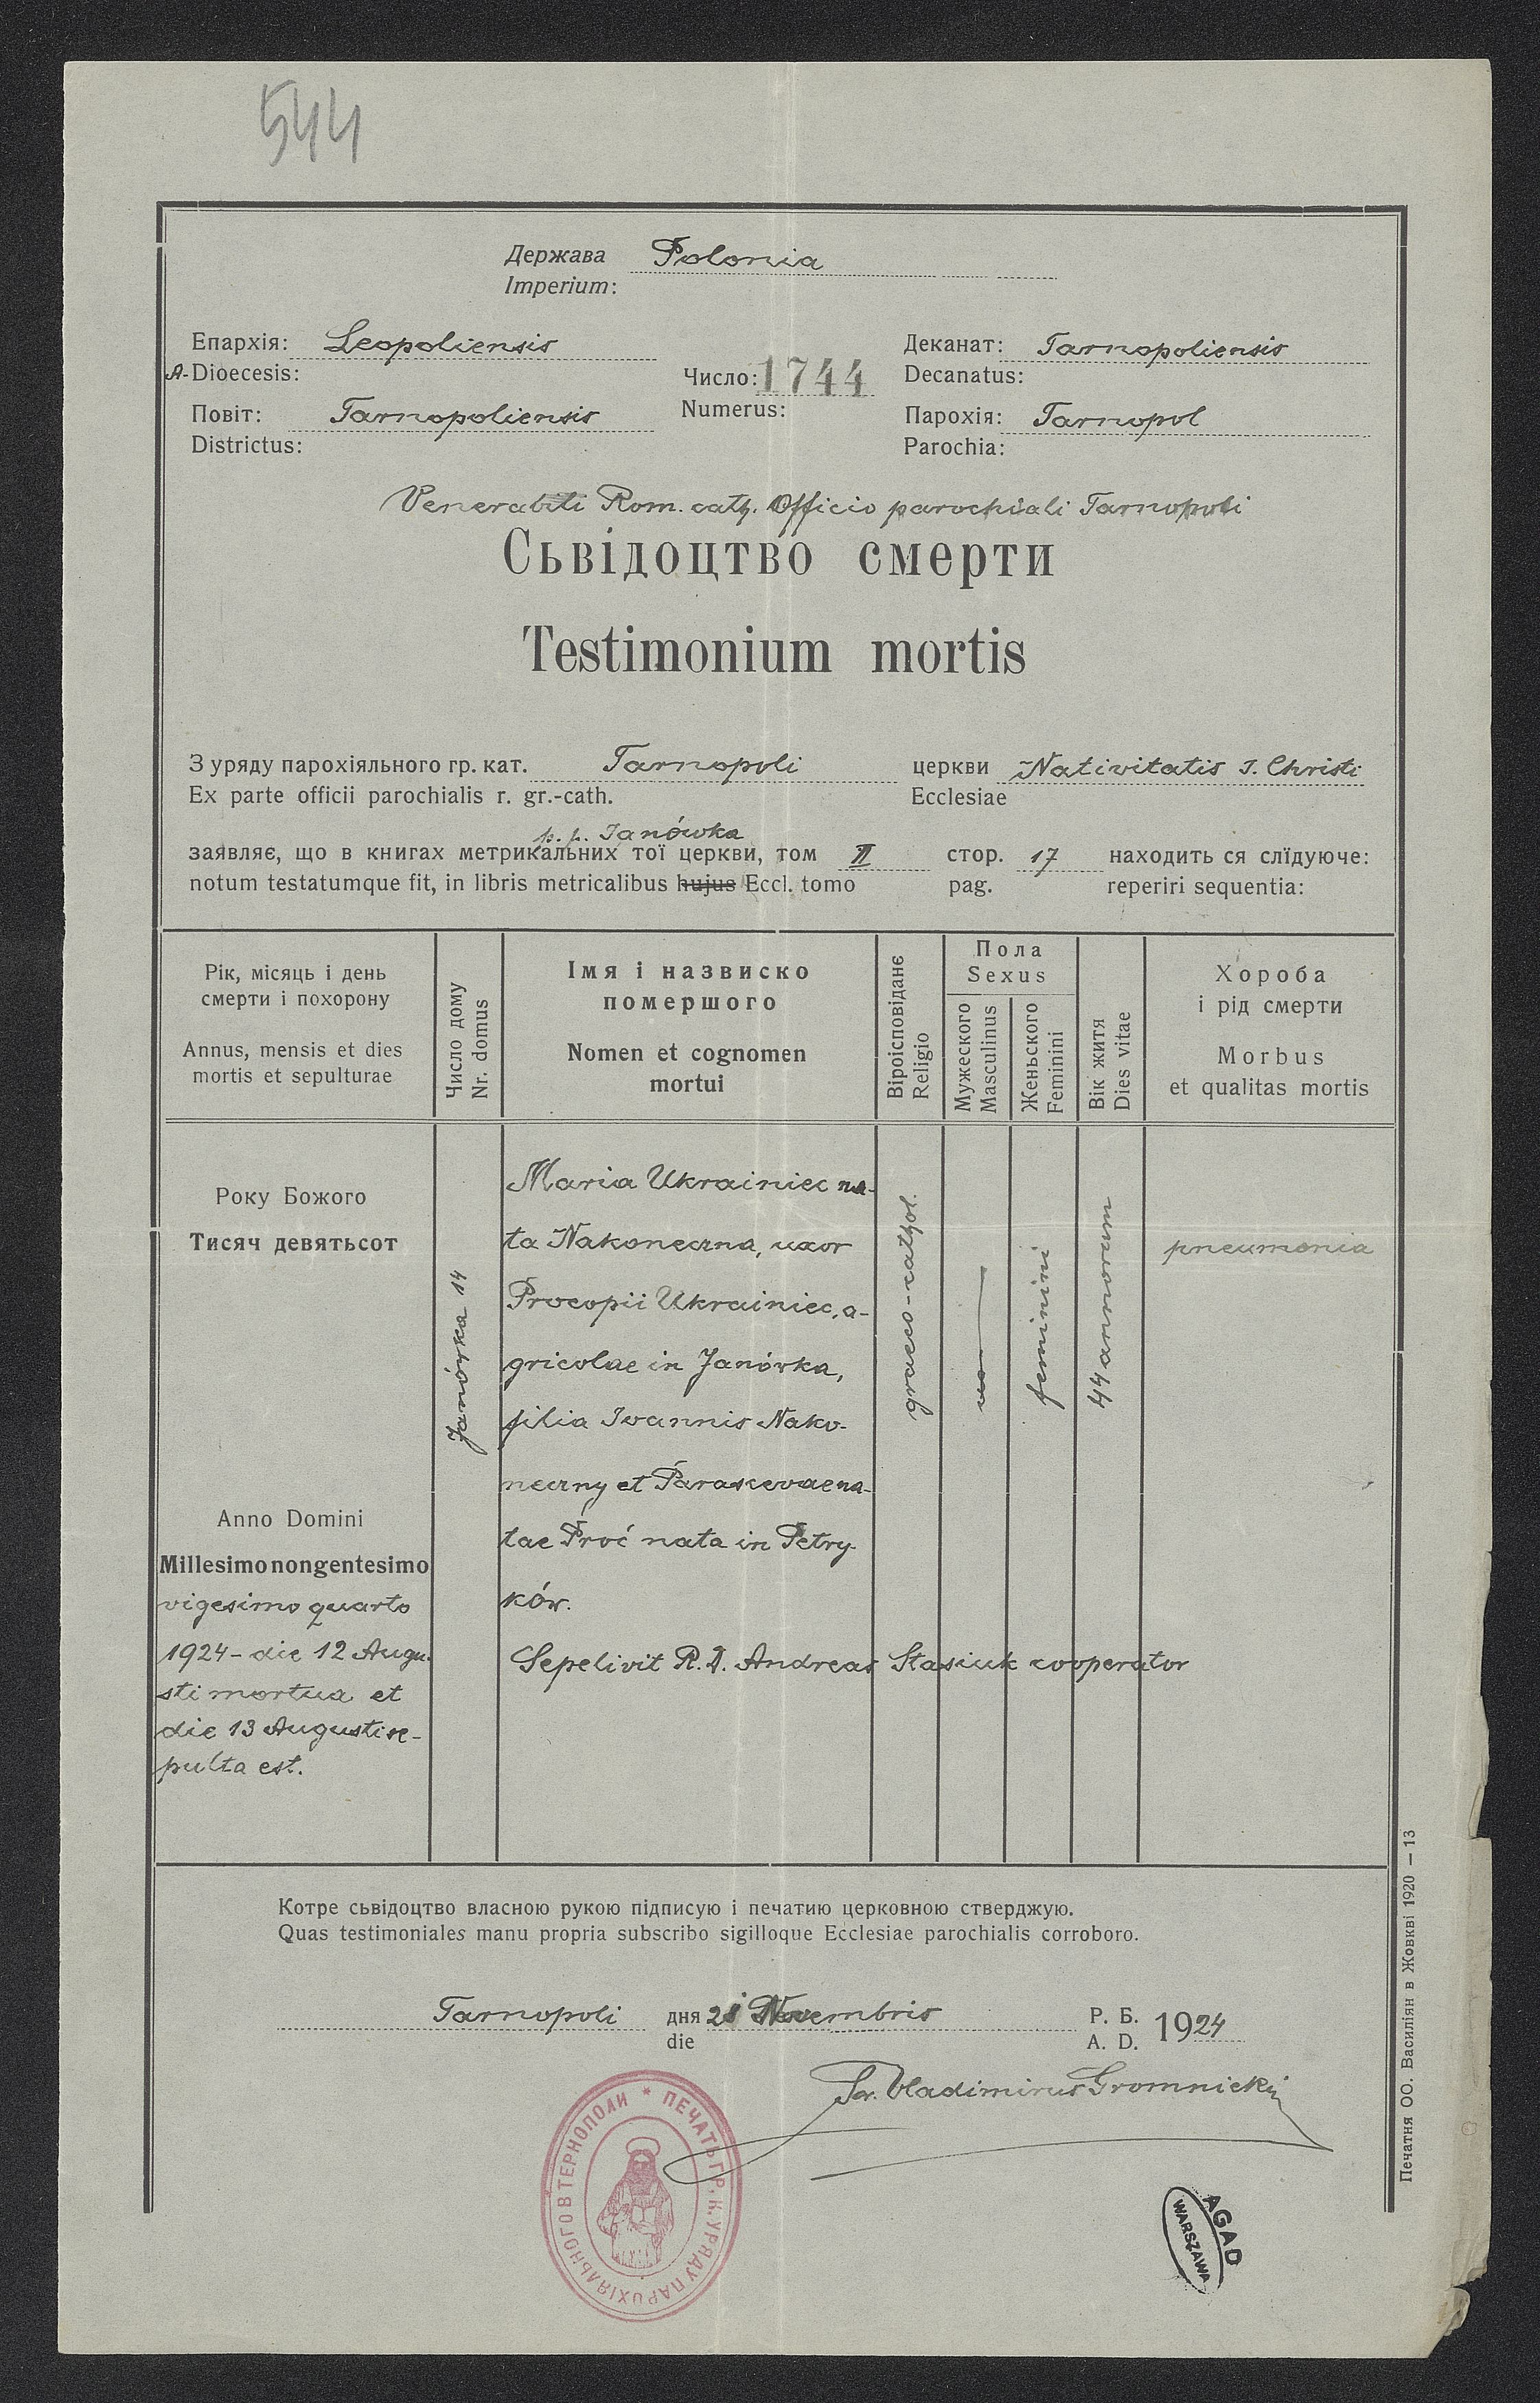 544
Держава Polonia
Imperium:
Епархія: Leopoliensis
A-Dioecesis:
Число: 1744
Numerus:
Деканат: Tarnopoliensis
Decanatus:
Повіт: Tarnopoliensis
Districtus:
Парохія: Tarnopol
Parochia:
Venerabili Rom. cath. Officio parochiali Tarnopoli
Сьвідоцтво смерти
Testimonium mortis
З уряду парохіяльного гр. кат. Tarnopoli церкви Nativitatis J. Christi
Ex parte officii parochialis r. gr.-cath. Ecclesiae
p. p. Janówka
заявляє, що в книгах метрикальних тої церкви, том II стор. 17 находить ся слїдуюче:
notum testatumque fit, in libris metricalibus hujus Eccl. tomo pag. reperiri sequentia:
Рік, місяць і день
смерти і похорону
Annus, mensis et dies
mortis et sepulturae
Число дому
Nr. domus
Імя і назвиско
помершого
Nomen et cognomen
mortui
Віроісповіданє
Religio
Пола
Sexus
Мужеского
Masculinus
Женьского
Feminini
Вік житя
Dies vitae
Хороба
і рід смерти
Morbus
et qualitas mortis
Року Божого
Тисяч девятьсот
Anno Domini
Millesimo nongentesimo
vigesimo quarto
1924 - die 12 Augu-
sti mortua et
die 13 Augusti se-
pulta est.
Janówka 14
Maria Ukrainiec na-
ta Nakoneczna, uxor
Procopii Ukrainiec, a-
gricolae in Janówka,
filia Ioannis Nako-
neczny et Parascevae na-
tae Proć nata in Petry-
ków.
Sepelivit R. D. Andreas Stasiuk cooperator
graeco-cathol.
feminini
44 annorum
pneumonia
Котре сьвідоцтво власною рукою підписую і печатию церковною стверджую.
Quas testimoniales manu propria subscribo sigilloque Ecclesiae parochialis corroboro.
Tarnopoli дня 28 Novembris Р. Б. 1924
die A. D.
Vladimirus Gromnickyj
* ПЕЧАТЬ ГР. К. УРЯДУ ПАРОХІЯЛЬНОГО В ТЕРНОПОЛИ
AGAD
WARSZAWA
Печатня ОО. Василіян в Жовкві 1920 — 13